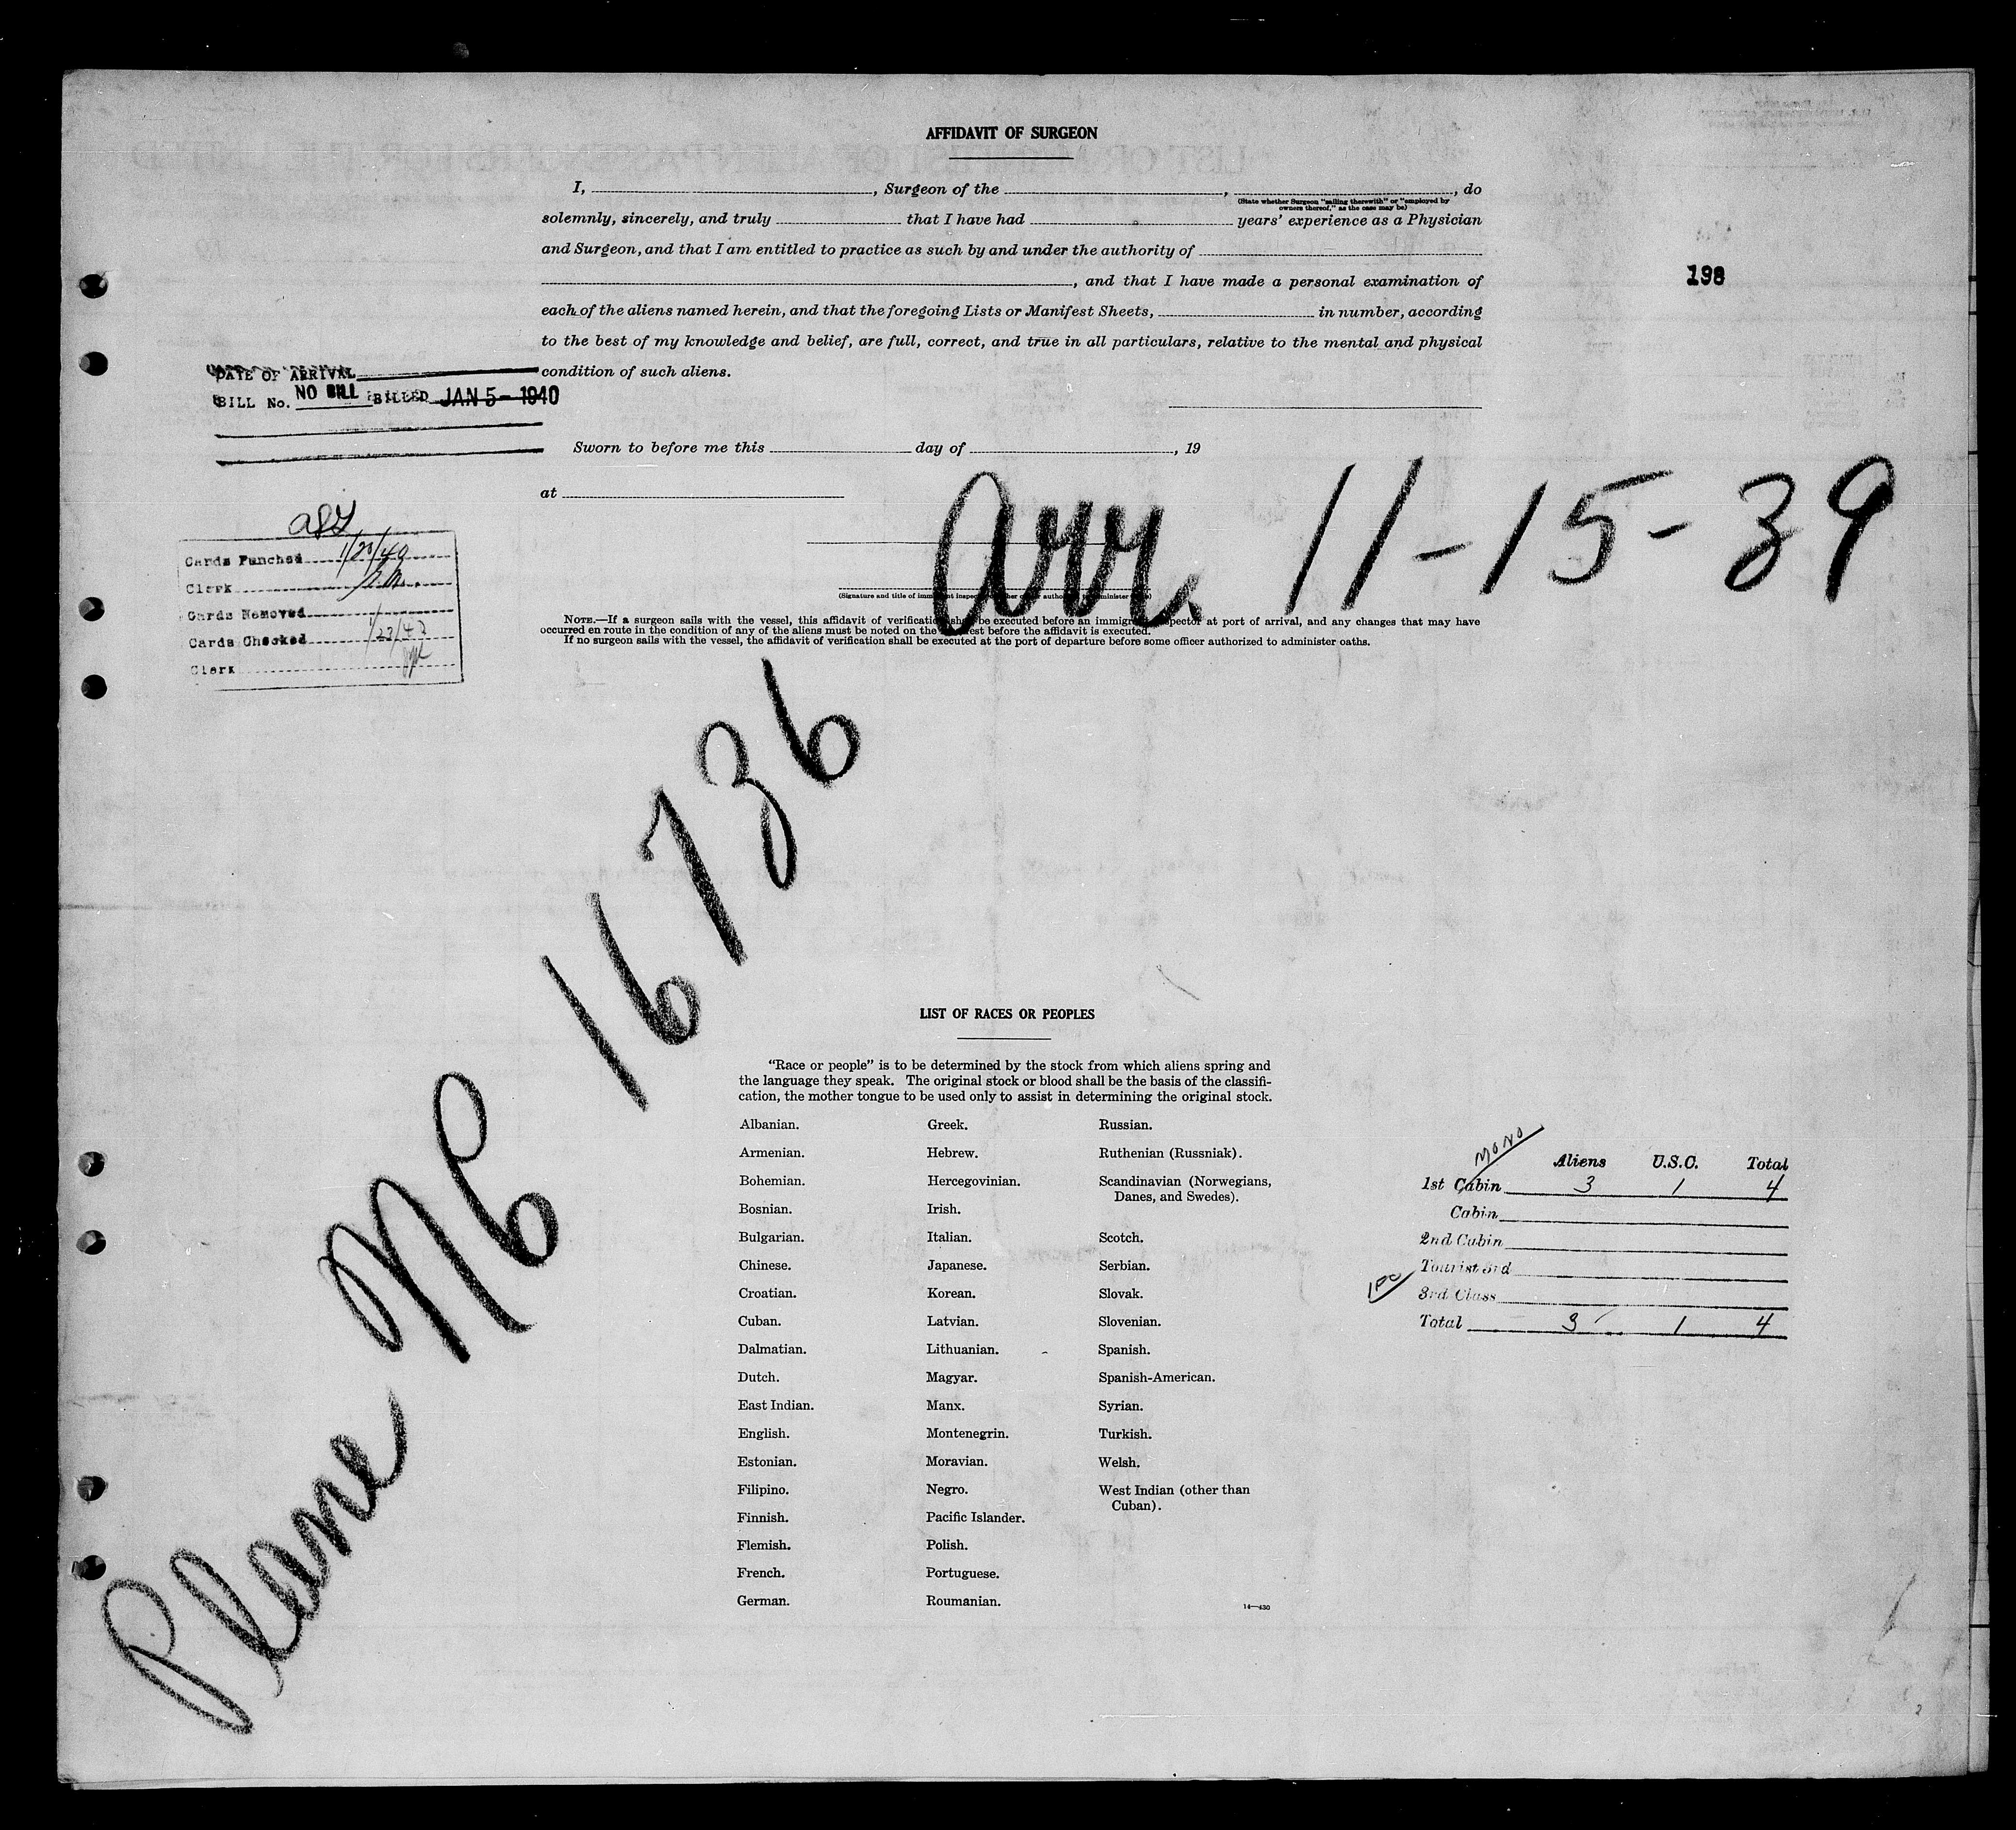 AFFIDAVIT OF SURGEON
I, , Surgeon of the , , do
(State whether Surgeon "sailing therewith" or "employed by
owners thereof," as the case may be)
solemnly, sincerely, and truly that I have had years' experience as a Physician
and Surgeon, and that I am entitled to practice as such by and under the authority of
198
, and that I have made a personal examination of
each of the aliens named herein, and that the foregoing Lists or Manifest Sheets, in number, according
to the best of my knowledge and belief, are full, correct, and true in all particulars, relative to the mental and physical
condition of such aliens.
DATE OF ARRIVAL
BILL No. NO BILL BILLED JAN 5 - 1940
Sworn to before me this day of , 19
at
arr. 11-15-39
Cards Punched 1/23/40
Clerk
Cards Removed
Cards Checked 1/23/40
Clerk
(Signature and title of immigrant
NOTE.—If a surgeon sails with the vessel, this affidavit of verification shall be executed before an immigrant inspector at port of arrival, and any changes that may have
occurred en route in the condition of any of the aliens must be noted on the manifest before the affidavit is executed.
If no surgeon sails with the vessel, the affidavit of verification shall be executed at the port of departure before some officer authorized to administer oaths.
Plane NC 16736
LIST OF RACES OR PEOPLES
"Race or people" is to be determined by the stock from which aliens spring and
the language they speak. The original stock or blood shall be the basis of the classifi-
cation, the mother tongue to be used only to assist in determining the original stock.
Albanian.
Armenian.
Bohemian.
Bosnian.
Bulgarian.
Chinese.
Croatian.
Cuban.
Dalmatian.
Dutch.
East Indian.
English.
Estonian.
Filipino.
Finnish.
Flemish.
French.
German.
Greek.
Hebrew.
Hercegovinian.
Irish.
Italian.
Japanese.
Korean.
Latvian.
Lithuanian.
Magyar.
Manx.
Montenegrin.
Moravian.
Negro.
Pacific Islander.
Polish.
Portuguese.
Roumanian.
Russian.
Ruthenian (Russniak).
Scandinavian (Norwegians,
Danes, and Swedes).
Scotch.
Serbian.
Slovak.
Slovenian.
Spanish.
Spanish-American.
Syrian.
Turkish.
Welsh.
West Indian (other than
Cuban).
14—430
Aliens U.S.C. Total
1st Cabin 3 1 4
Cabin
2nd Cabin
Tourist 3rd
3rd Class
Total 3 1 4